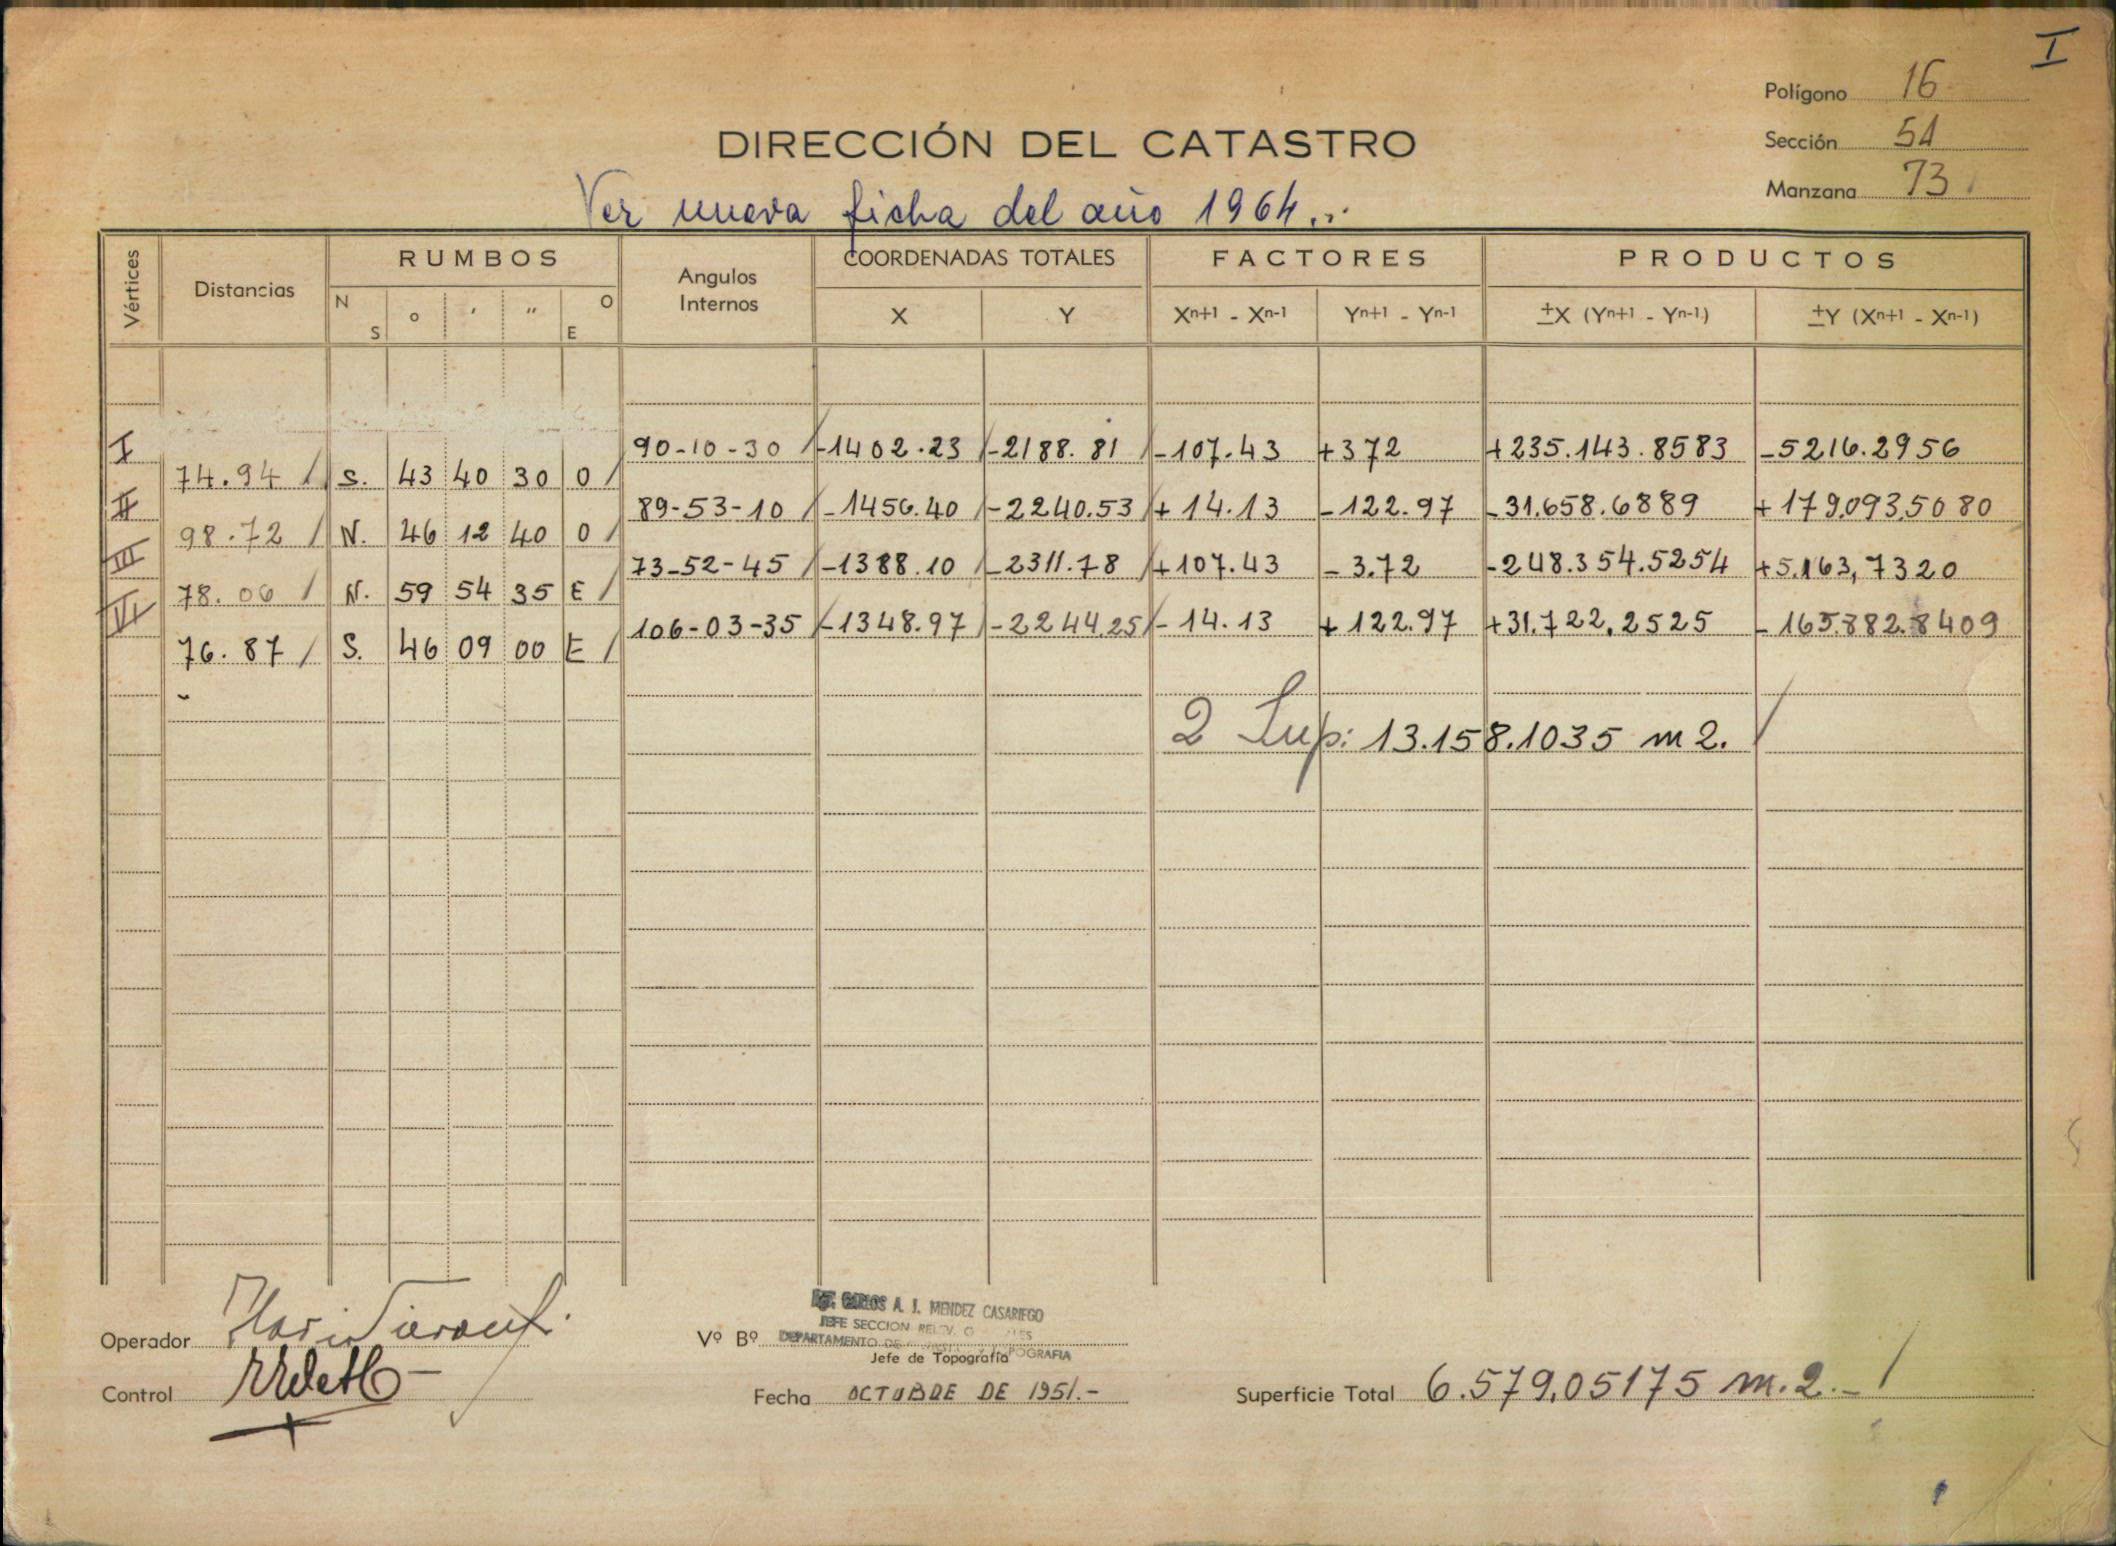 I
Polígono 16
DIRECCIÓN DEL CATASTRO
Sección 51
Manzana 73
Ver nueva ficha del año 1964...
Vértices Distancias RUMBOS Angulos Internos COORDENADAS TOTALES FACTORES PRODUCTOS
N S o ' " O E X Y Xn+1 - Xn-1 Yn+1 - Yn-1 ±X (Yn+1 - Yn-1) ±Y (Xn+1 - Xn-1)
I 90-10-30 -1402.23 -2188.81 -107.43 +372 +235.143.8583 -5216.2956
74.94 S. 43 40 30 O
II 89-53-10 -1456.40 -2240.53 +14.13 -122.97 -31.658.6889 +179.093.5080
98.72 N. 46 12 40 O
III 73-52-45 -1388.10 -2311.78 +107.43 -3.72 -248.354.5254 +5.163,7320
78.06 N. 59 54 35 E
IV 106-03-35 -1348.97 -2244.25 -14.13 +122.97 +31.722,2525 -165.882.8409
76.87 S. 46 09 00 E
2 Sup: 13.158.1035 m2.
Operador
Vº Bº
CARLOS A. J. MENDEZ CASARIEGO
JEFE SECCION RELEV.
DEPARTAMENTO DE
Jefe de Topografía
Control
Fecha OCTUBRE DE 1951.-
Superficie Total 6.579,05175 m.2.-